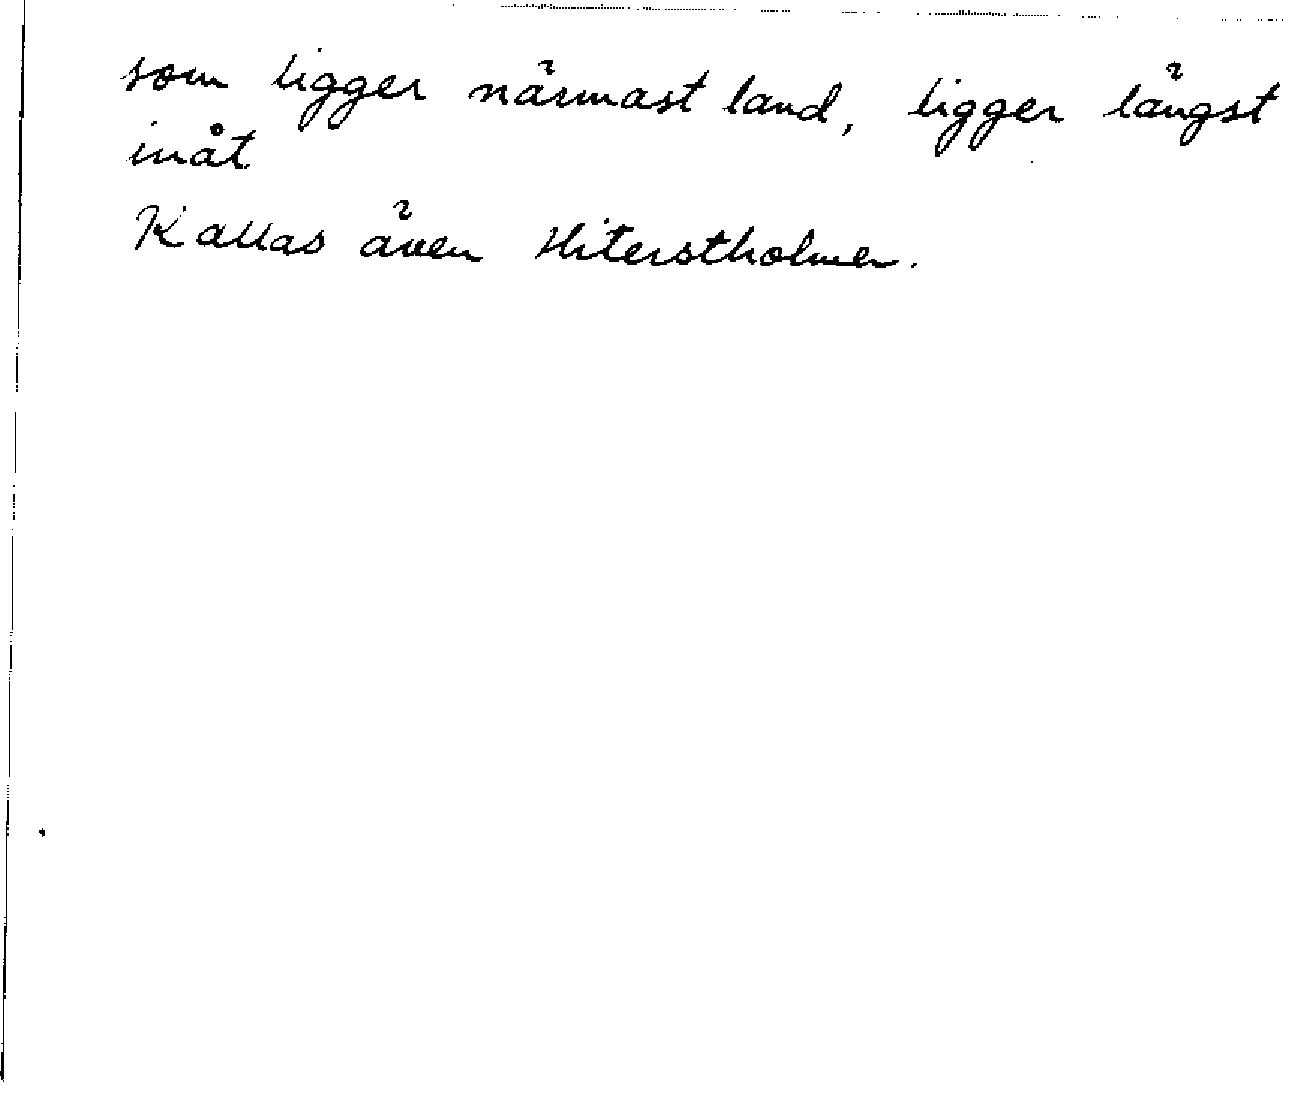 som ligger närmast land, ligger längst
inåt
Kallas även Hiterstholmen.